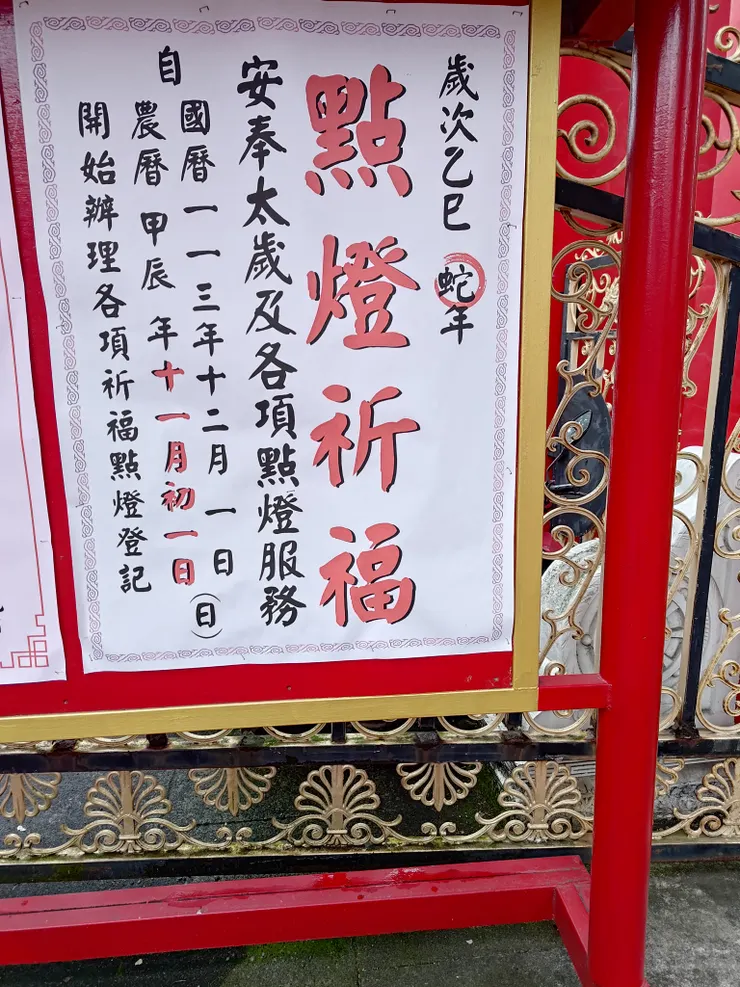 歲次乙巳蛇年
點燈祈福
安奉太歲及各項點燈服務
自
國曆一一三年十二月一日(日)
農曆甲辰年十一月初一日
開始辦理各項祈福點燈登記